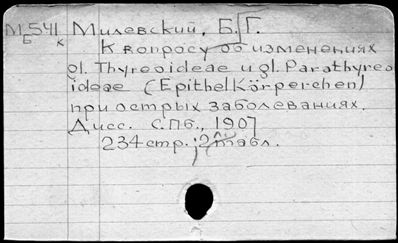 М541 Милевский, Б. Г.
Б к
К вопросу об изменениях
gl. Thyreoideae и gl. Parathyreo
ideae (Epithelkörperchen)
при острых заболеваниях.
Дисс. С.Пб., 1907
234 стр. 2 табл.